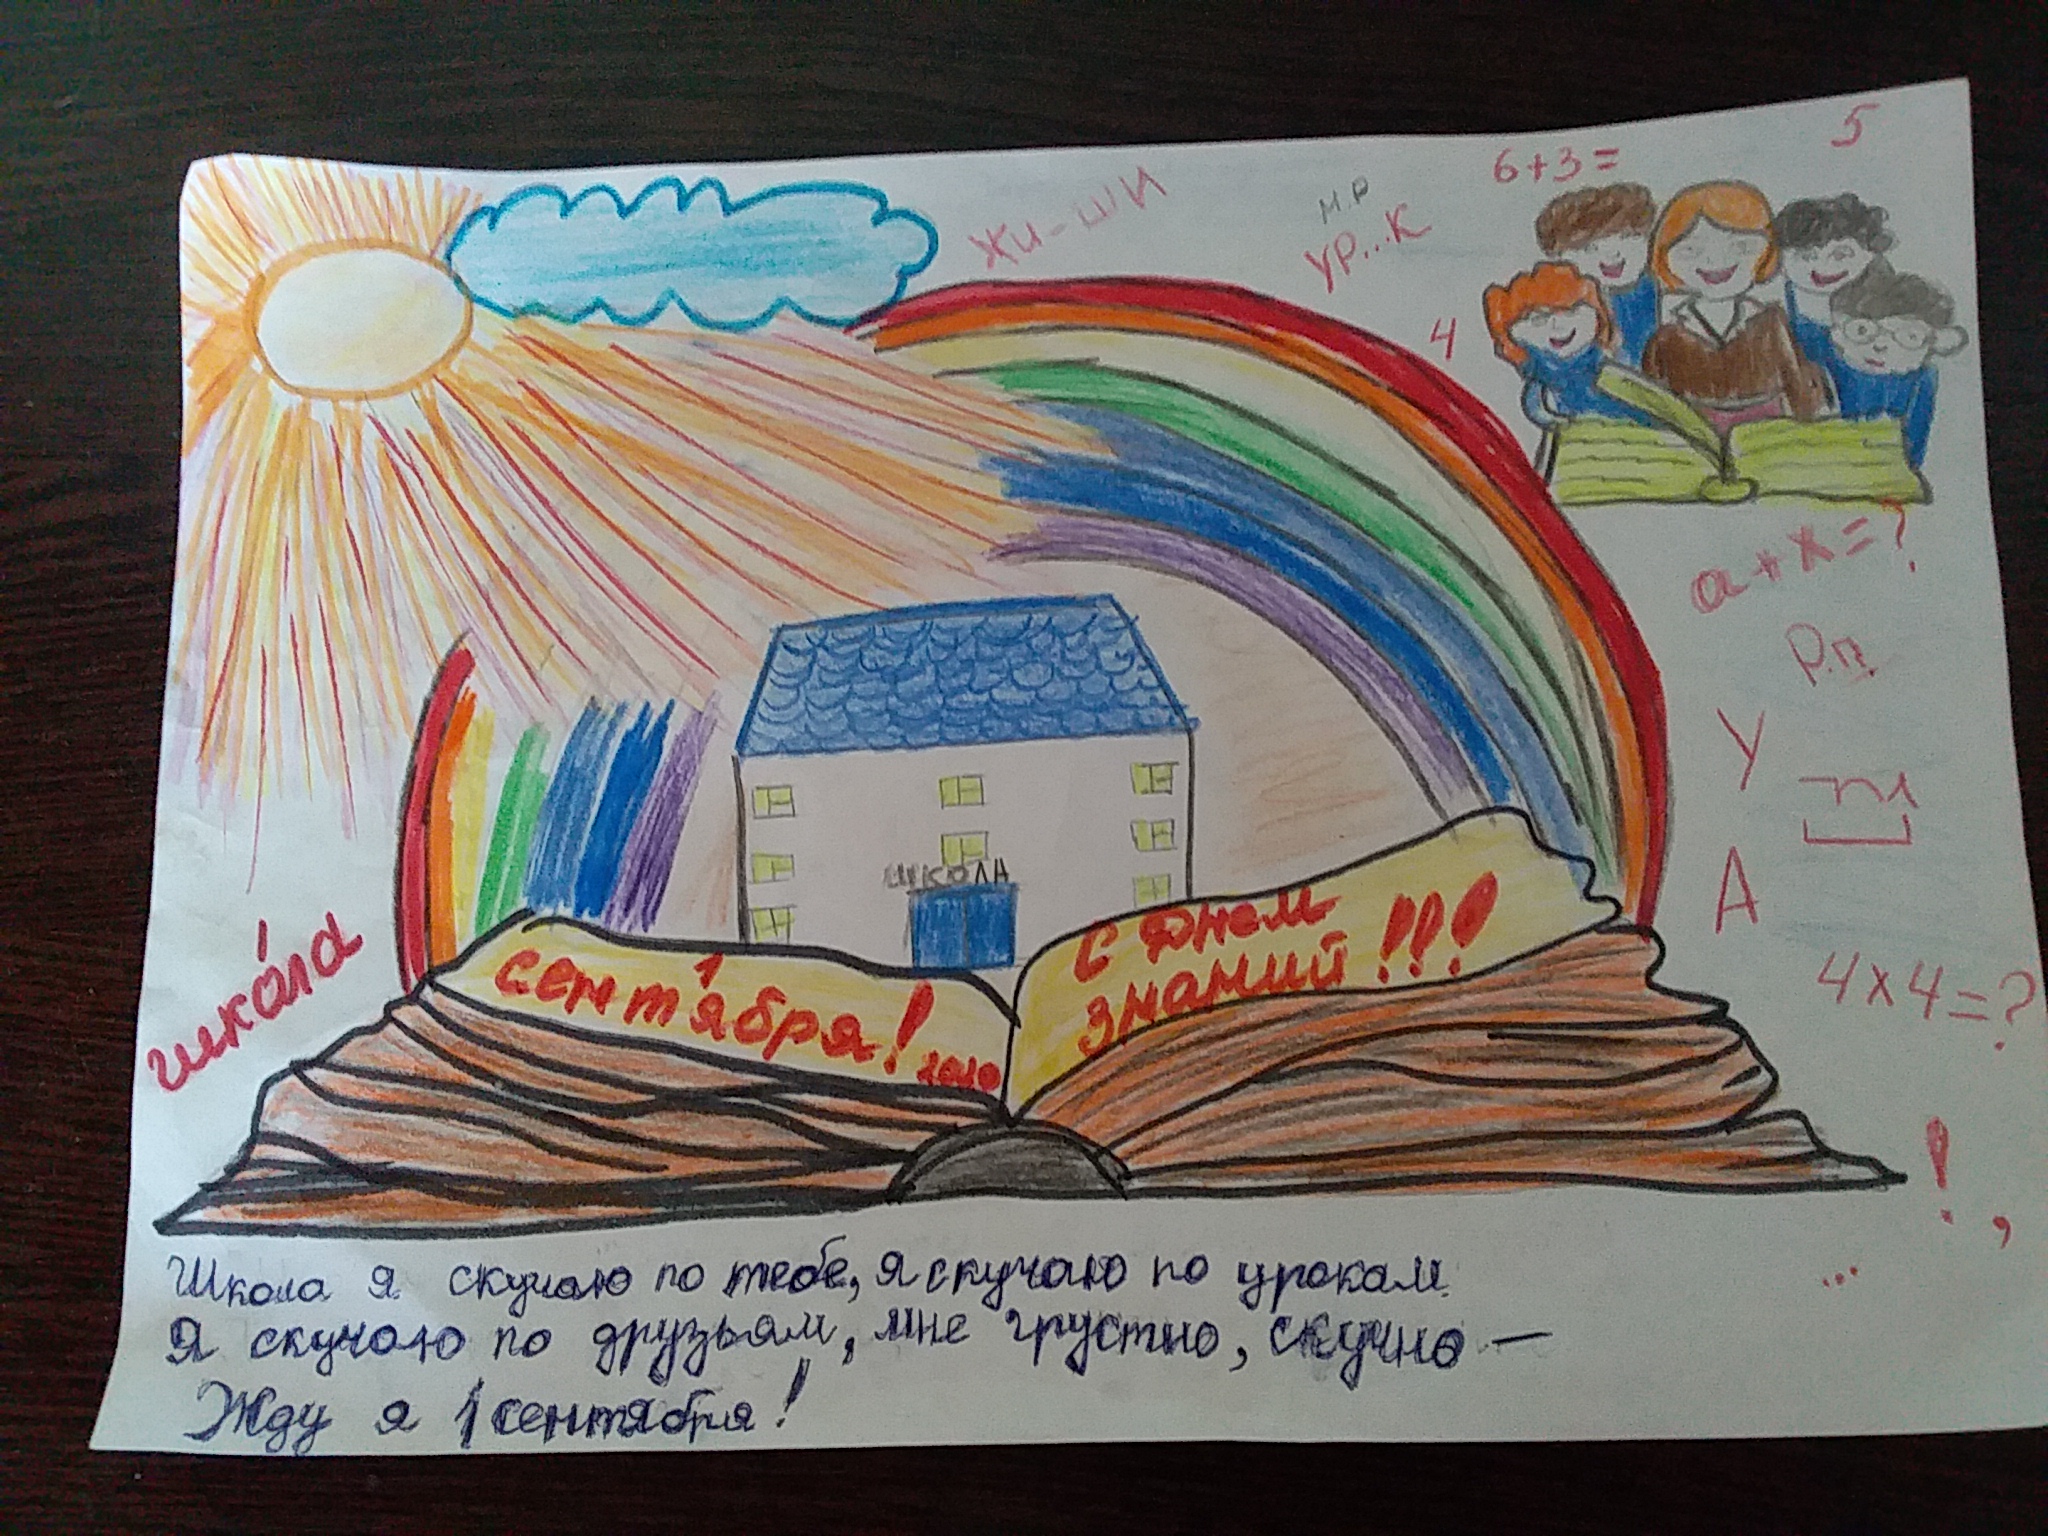 5
6+3=
Жи-ши
м.р
ур...к
4
а+х=?
Р.п.
У
А
4х4=?
ШКОЛА
шко́ла
1
сентября! 2020
С Днем
знаний!!!
!,
...
Школа я скучаю по тебе, я скучаю по урокам.
Я скучаю по друзьям, мне грустно, скучно —
Жду я 1 сентября!